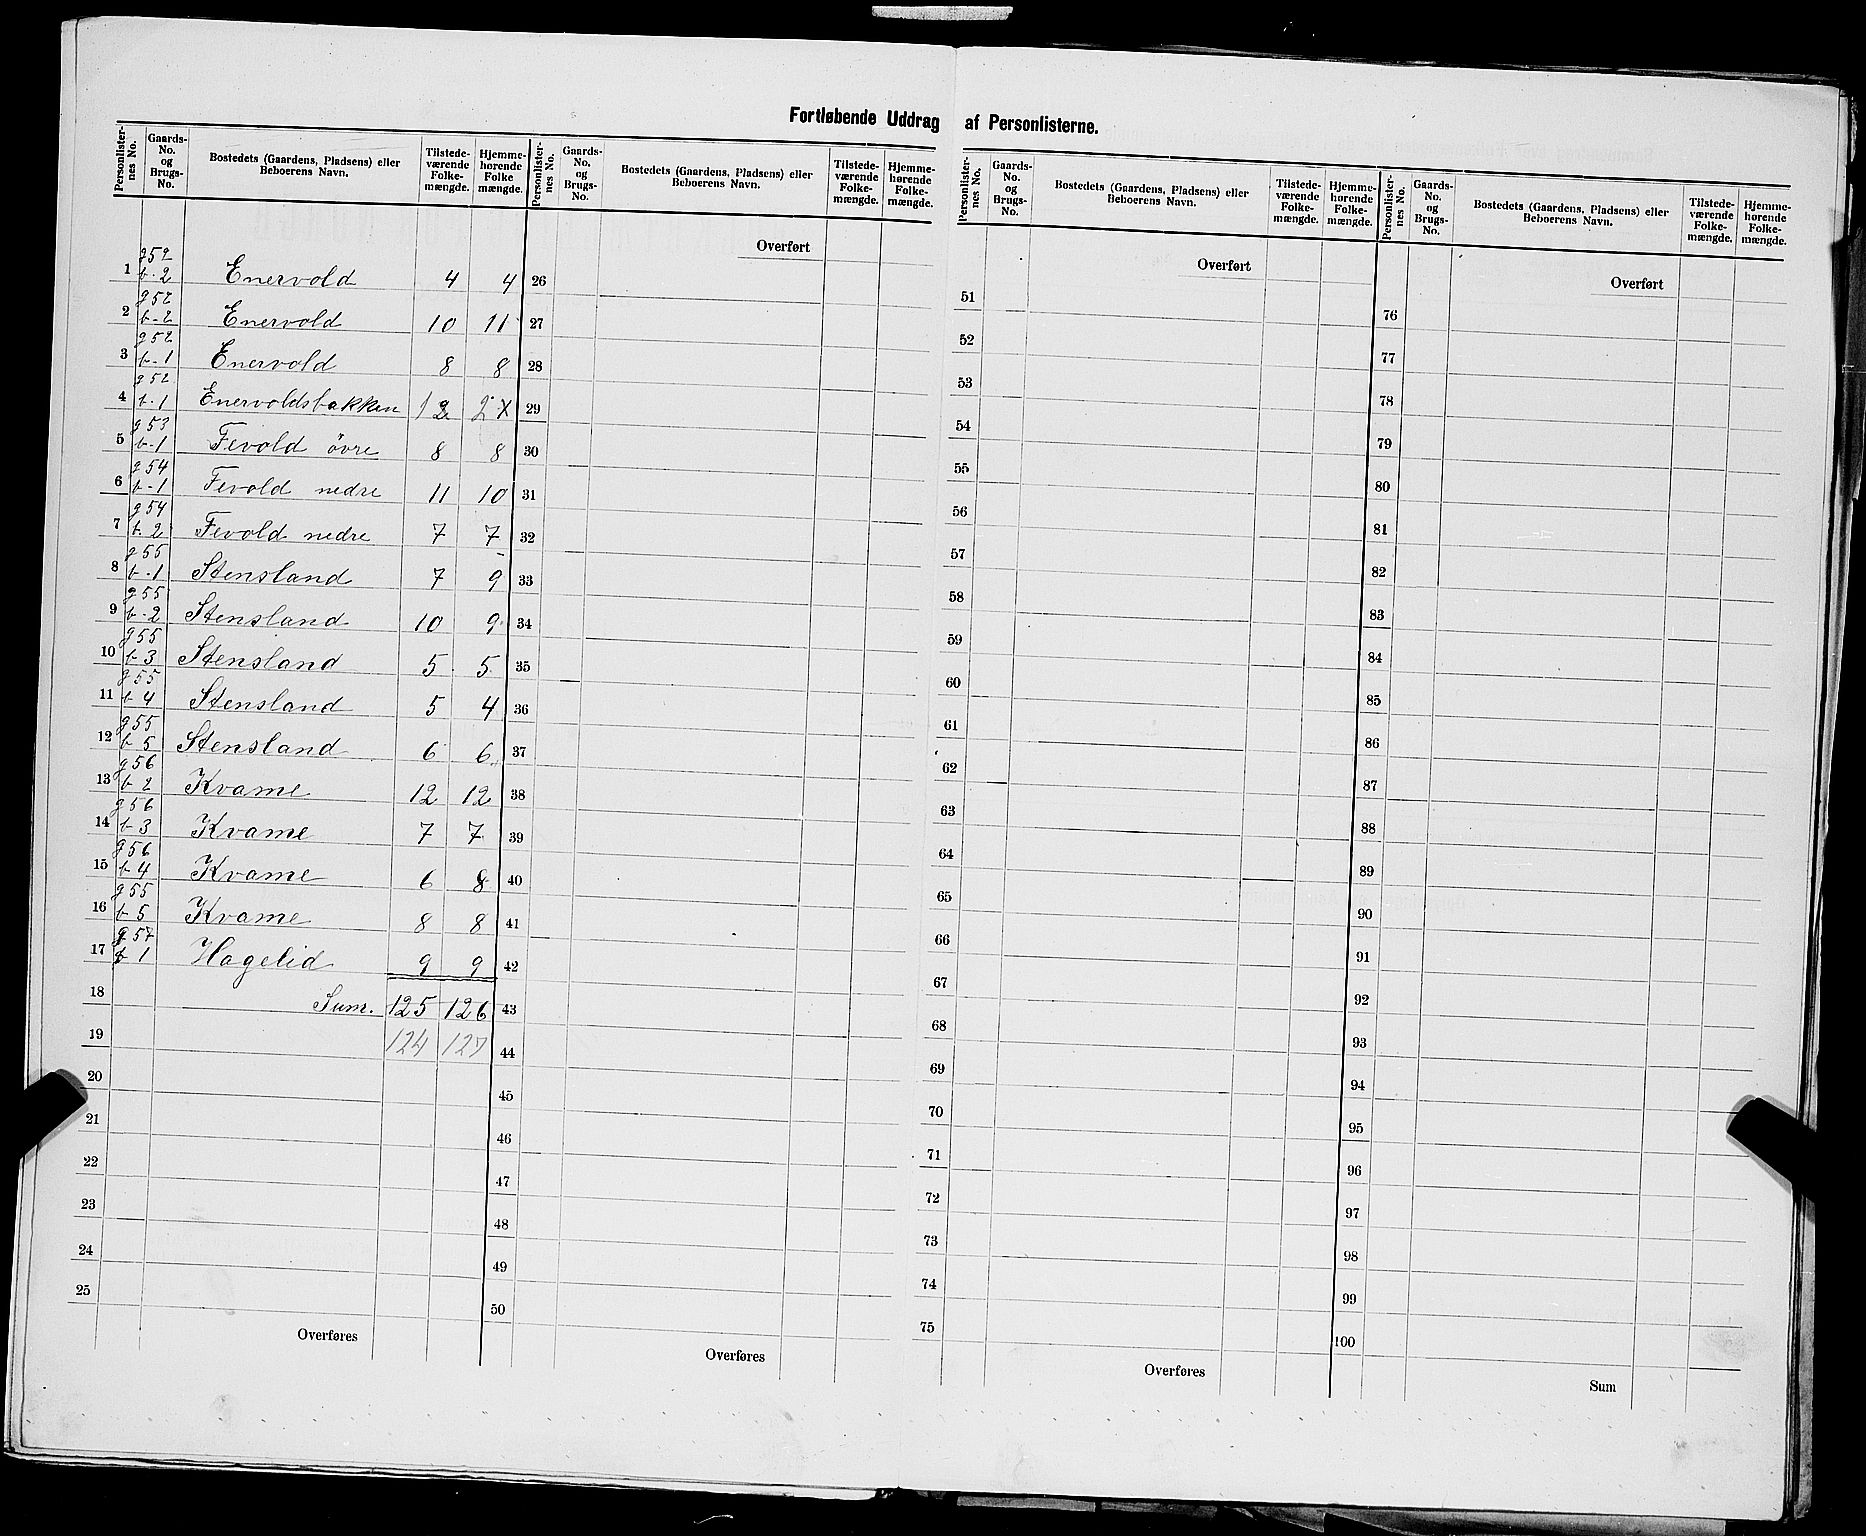 Fortløbende Uddrag af Personlisterne.
Personlisternes No. | Gaards-No. og Brugs-No. | Bostedets (Gaardens, Pladsens) eller Beboerens Navn. | Tilstedeværende Folkemængde. | Hjemmehørende Folkemængde.
1 | g 52 b. 2 | Enervold | 4 | 4
2 | g 52 b-2 | Enervold | 10 | 11
3 | g 52 b-1 | Enervold | 8 | 8
4 | g 52 b-1 | Enervoldsbakken | 1 2 | 2 X
5 | g 53 b-1 | Fevold övre | 8 | 8
6 | g 54 b-1 | Fevold nedre | 11 | 10
7 | g 54 b. 2 | Fevold nedre | 7 | 7
8 | g 55 b-1 | Stensland | 7 | 9
9 | g 55 b-2 | Stensland | 10 | 9
10 | g 55 b 3 | Stensland | 5 | 5
11 | g 55 b 4 | Stensland | 5 | 4
12 | g 55 b 5 | Stensland | 6 | 6
13 | g 56 b 2 | Kvame | 12 | 12
14 | g 56 b-3 | Kvame | 7 | 7
15 | g 56 b 4 | Kvame | 6 | 8
16 | g 55 b 5 | Kvame | 8 | 8
17 | g 57 b 1 | Hagelid | 9 | 9
18 | Sum. | 125 | 126
19 | 124 | 127
20
21
22
23
24
25
Overføres
Personlisternes No. | Gaards-No. og Brugs-No. | Bostedets (Gaardens, Pladsens) eller Beboerens Navn. | Tilstedeværende Folkemængde. | Hjemmehørende Folkemængde.
Overført
26
27
28
29
30
31
32
33
34
35
36
37
38
39
40
41
42
43
44
45
46
47
48
49
50
Overføres
Personlisternes No. | Gaards-No. og Brugs-No. | Bostedets (Gaardens, Pladsens) eller Beboerens Navn. | Tilstedeværende Folkemængde. | Hjemmehørende Folkemængde.
Overført
51
52
53
54
55
56
57
58
59
60
61
62
63
64
65
66
67
68
69
70
71
72
73
74
75
Overføres
Personlisternes No. | Gaards-No. og Brugs-No. | Bostedets (Gaardens, Pladsens) eller Beboerens Navn. | Tilstedeværende Folkemængde. | Hjemmehørende Folkemængde.
Overført
76
77
78
79
80
81
82
83
84
85
86
87
88
89
90
91
92
93
94
95
96
97
98
99
100
Sum